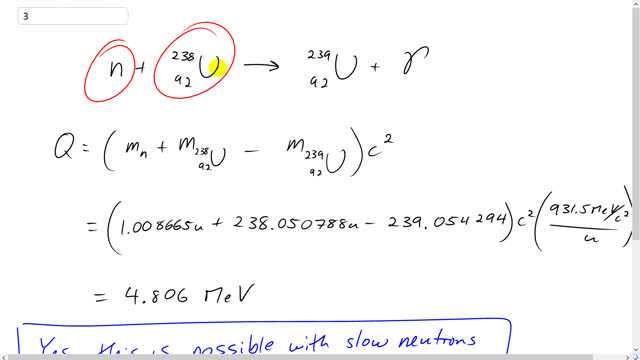 3
n + ²³⁸₉₂U → ²³⁹₉₂U + γ
Q = (mₙ + m ²³⁸₉₂U − m ²³⁹₉₂U) c²
= (1.008665u + 238.050788u − 239.054294) c² (931.5 MeV/c² / u)
= 4.806 MeV
Yes, this is possible with slow neutrons